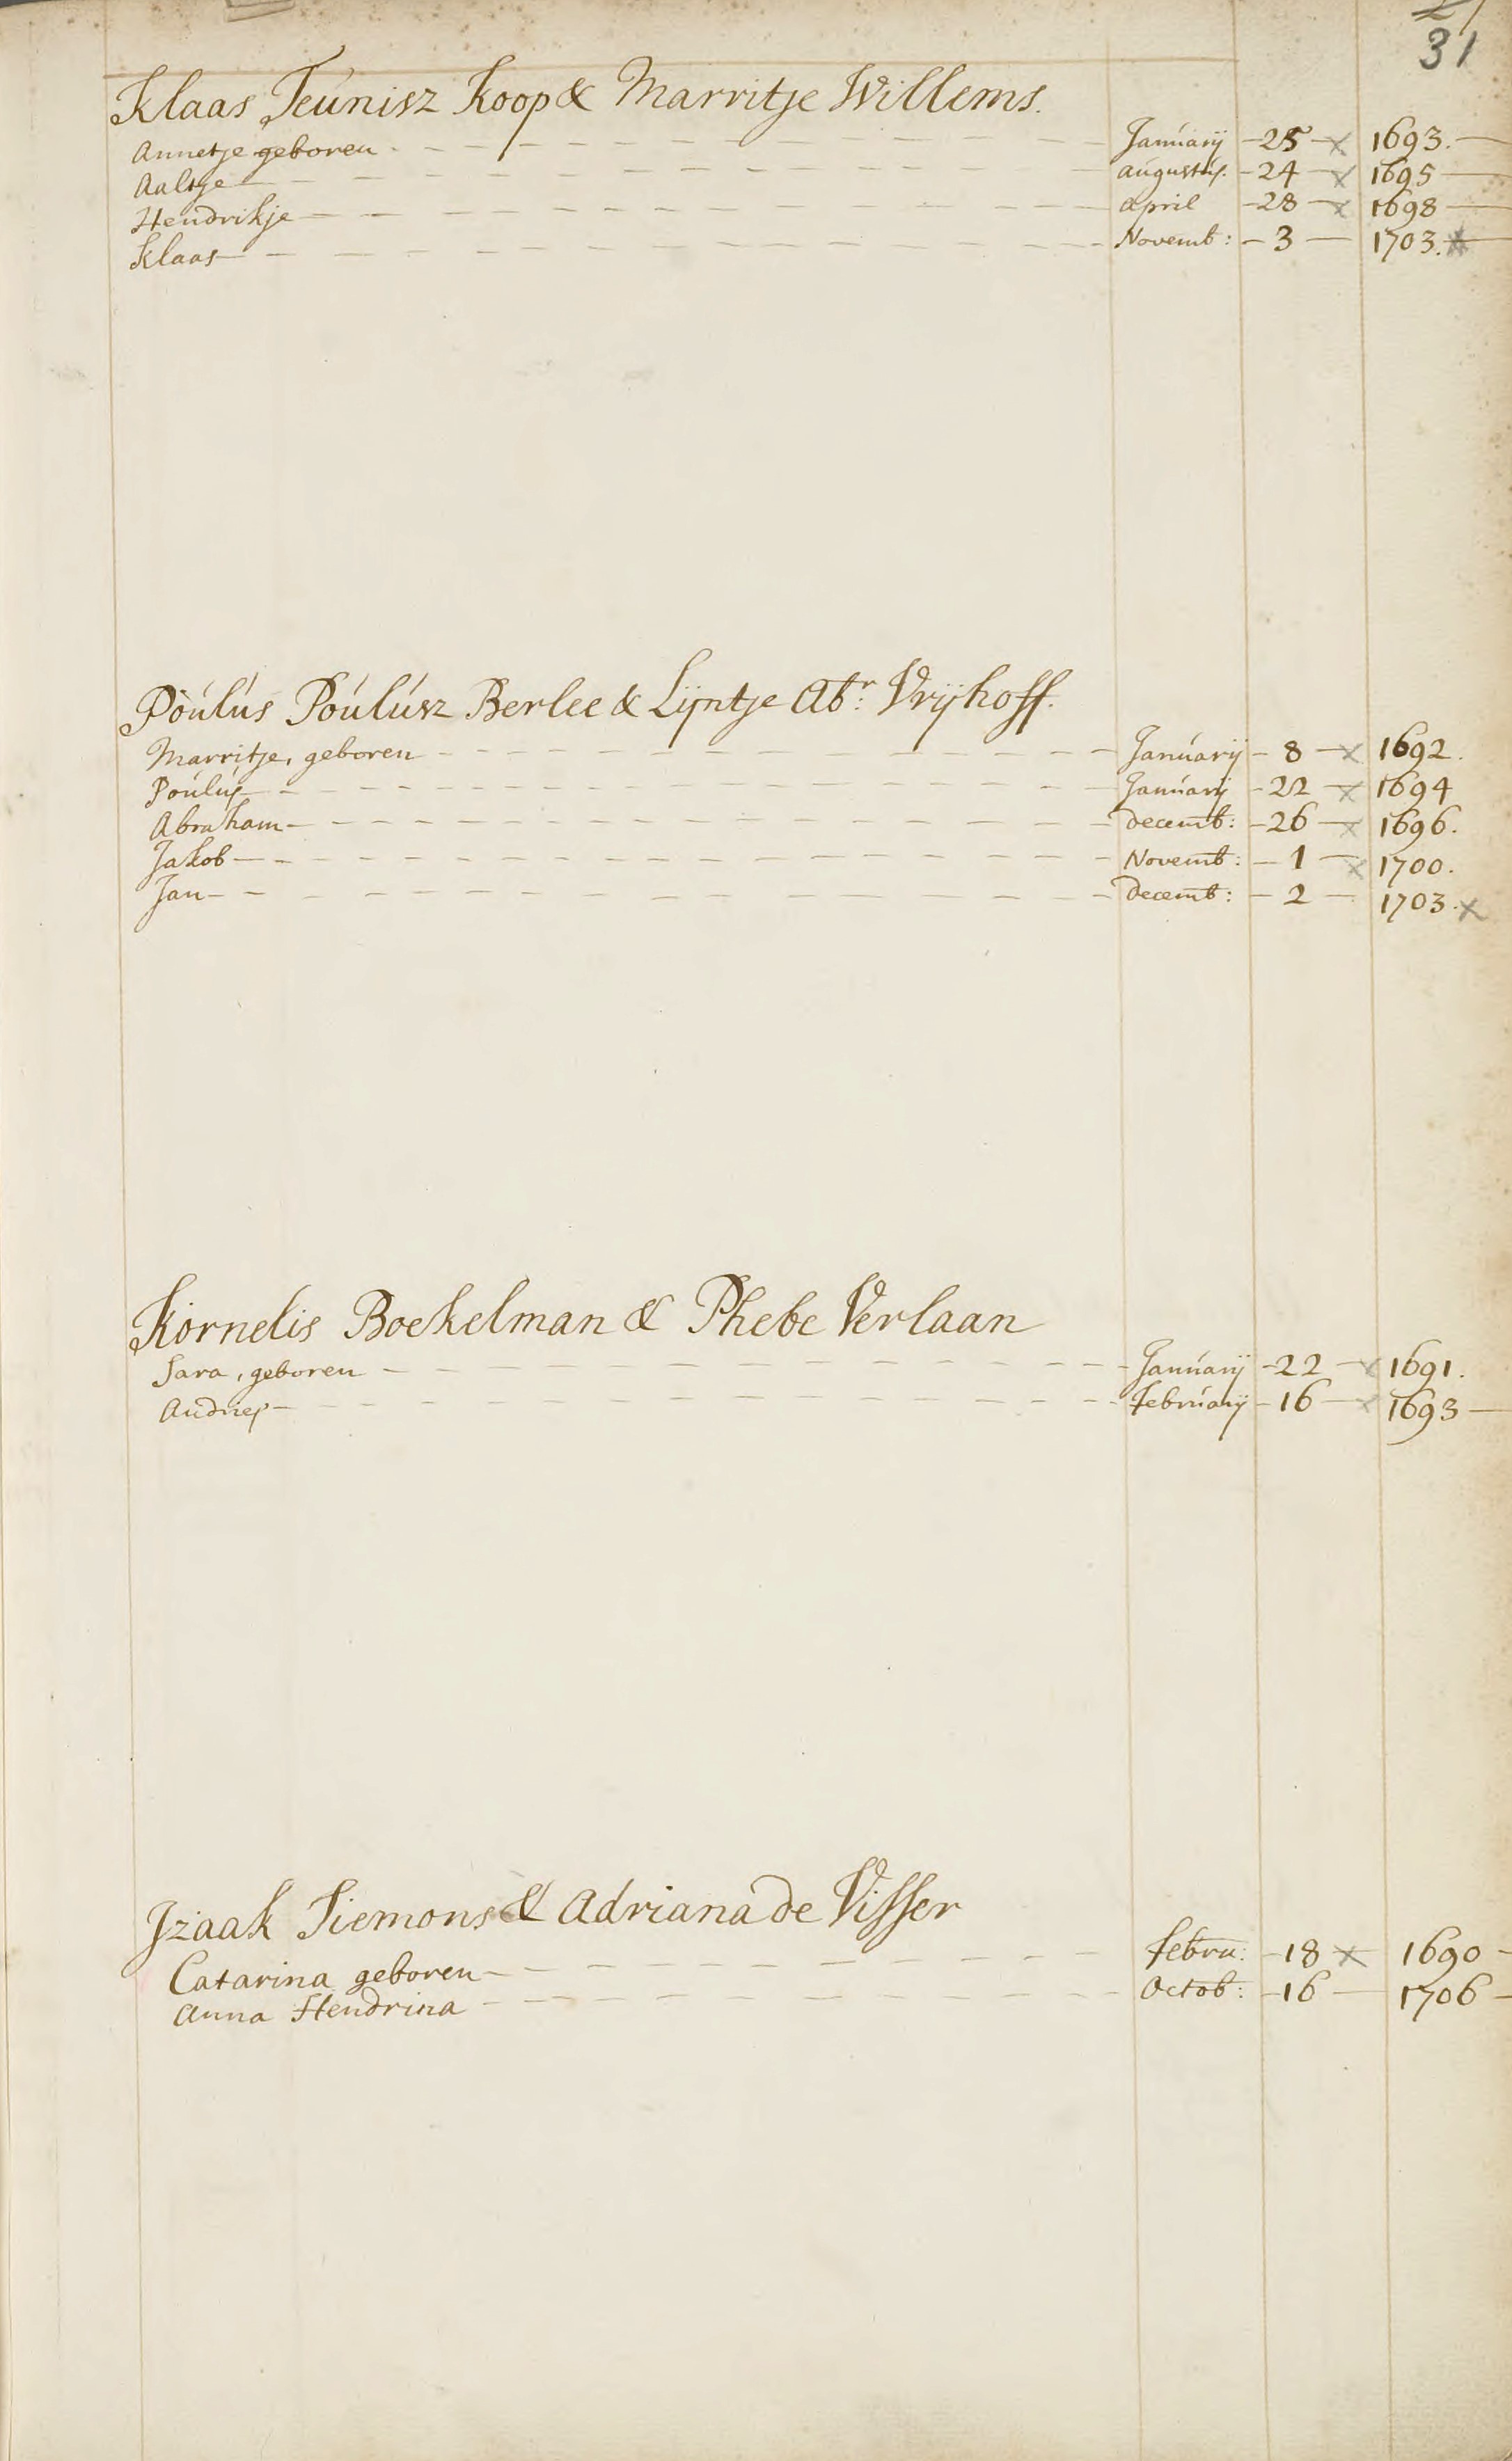 31
Klaas Teunisz Koop & Marritje Willems.
Annetje geboren - Januarij - 25 - x 1693.
Aaltje - augustus. - 24 - x 1695
Hendrikje - april - 28 - x 1698
Klaas - Novemb: - 3 - 1703. x
Poulus Poulusz Berlee & Lijntje Abr: Vrijhoff.
Marritje, geboren - Januarij - 8 - x 1692.
Poulus - Januarij - 22 - x 1694
Abraham - Decemb: - 26 - x 1696.
Jakob - Novemb: - 1 - x 1700.
Jan - Decemb: - 2 - 1703. x
Kornelis Boekelman & Phebe Verlaan
Sara, geboren - Januarij - 22 - x 1691.
Andries - februarij - 16 - x 1693
Izaak Siemons & Adriana de Visser
Catarina geboren - febru: - 18 x 1690 -
Anna Hendrina - Octob: - 16 - 1706 -